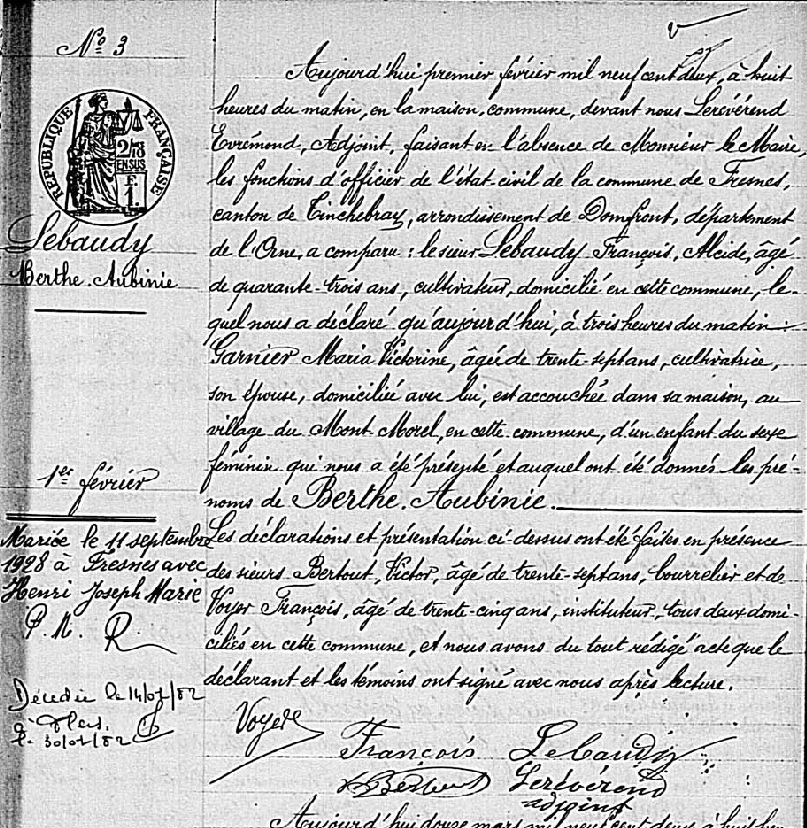 N° 3
RÉPUBLIQUE FRANÇAISE
2/10
EN SUS
F.
1.
Lebaudy
Berthe Aubinie
1er février
Mariée le 11 septembre
1928 à Fresnes avec
Henri Joseph Marie
P. M.
Décédée le 14/01/82
à Flers.
le 30/01/82
Aujourd'hui premier février mil neuf cent deux, à huit
heures du matin, en la maison commune, devant nous Lerévérend
Evrémond, Adjoint, faisant en l'absence de Monsieur le Maire
les fonctions d'officier de l'état civil de la commune de Fresnes,
canton de Tinchebray, arrondissement de Domfront, département
de l'Orne, a comparu : le sieur Lebaudy François, Alcide, âgé
de quarante-trois ans, cultivateur, domicilié en cette commune, le-
quel nous a déclaré qu'aujourd'hui, à trois heures du matin
Garnier Maria Victorine, âgée de trente-sept ans, cultivatrice,
son épouse, domiciliée avec lui, est accouchée dans sa maison, au
village du Mont Morel, en cette commune, d'un enfant du sexe
féminin qui nous a été présenté et auquel ont été donnés les pré-
noms de Berthe Aubinie.
Les déclarations et présentation ci-dessus ont été faites en présence
des sieurs Bertout, Victor, âgé de trente-sept ans, bourrelier et de
Voyer François, âgé de trente-cinq ans, instituteur, tous deux domi-
ciliés en cette commune, et nous avons du tout rédigé acte que le
déclarant et les témoins ont signé avec nous après lecture.
Voyer
François Lebaudy
V Bertout Lerévérend
adjoint
Aujourd'hui douze mars mil neuf cent deux à huit heu